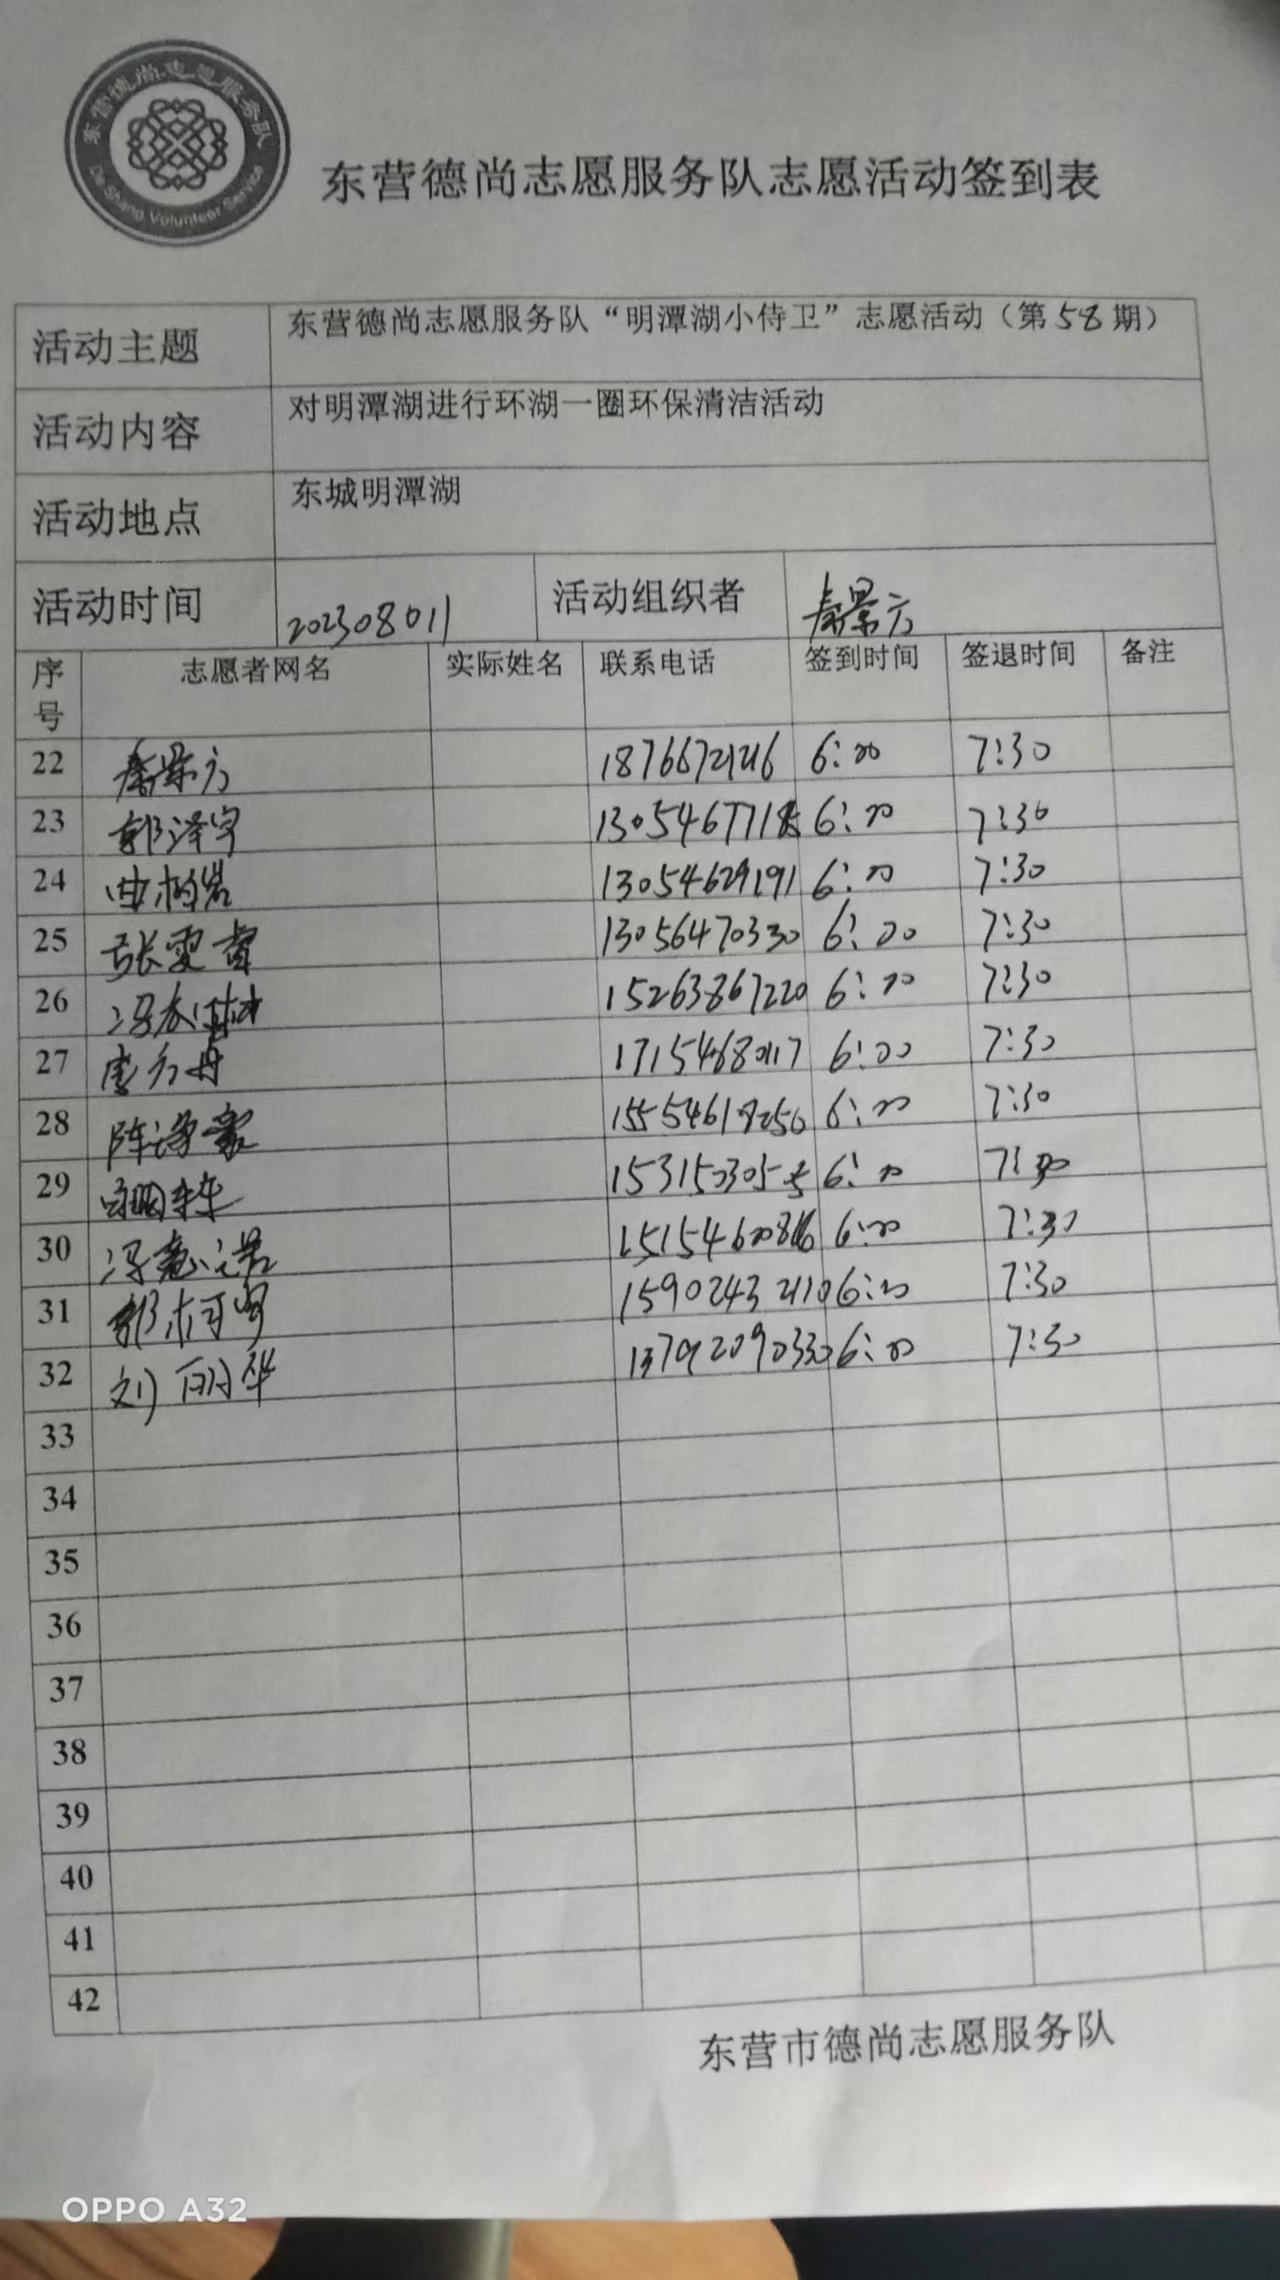 东营德尚志愿服务队
De Shang Volunteer Service
东营德尚志愿服务队志愿活动签到表
活动主题 东营德尚志愿服务队“明潭湖小侍卫”志愿活动（第58期）
活动内容 对明潭湖进行环湖一圈环保清洁活动
活动地点 东城明潭湖
活动时间 202308011 活动组织者 秦景方
序号 志愿者网名 实际姓名 联系电话 签到时间 签退时间 备注
22 秦景方 6:00 7:30
23 郭泽宇 6:00 7:30
24 曲柏岩 13054629191 6:00 7:30
25 张雯 13056470330 6:00 7:30
26 15263867220 6:00 7:30
27 6:00 7:30
28 6:00 7:30
29 6:00 7:30
30 6:00 7:30
31 郭柯宇 15902432110 6:00 7:30
32 刘丽华 13792090330 6:00 7:30
33
34
35
36
37
38
39
40
41
42
东营市德尚志愿服务队
OPPO A32